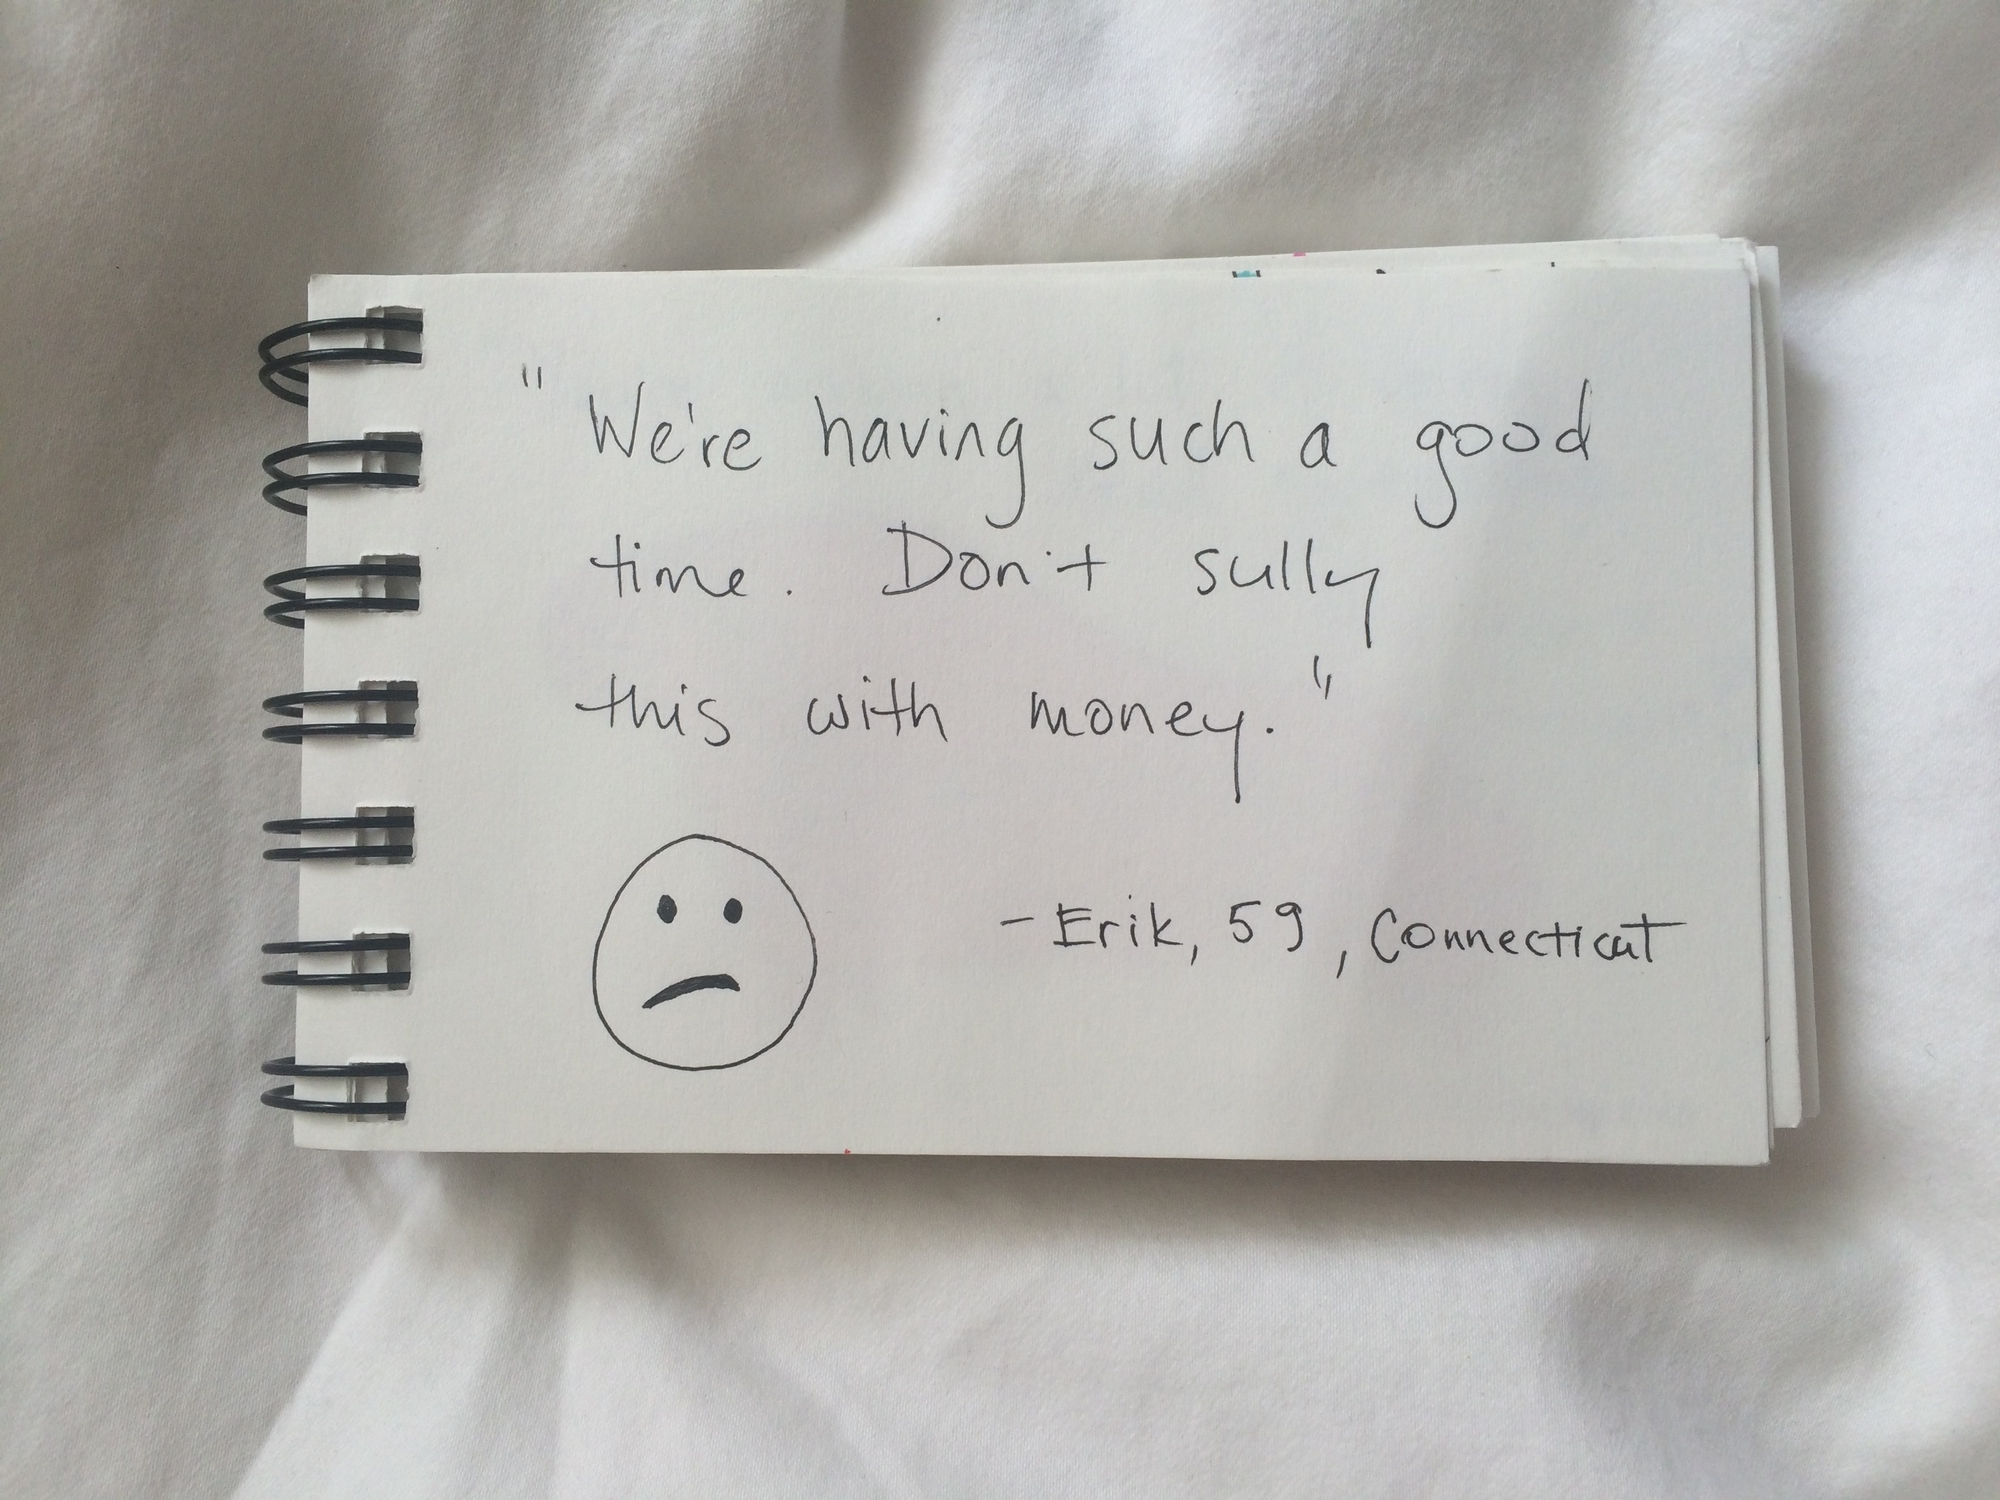 " We're having such a good
time. Don't sully
this with money."
- Erik, 59, Connecticut